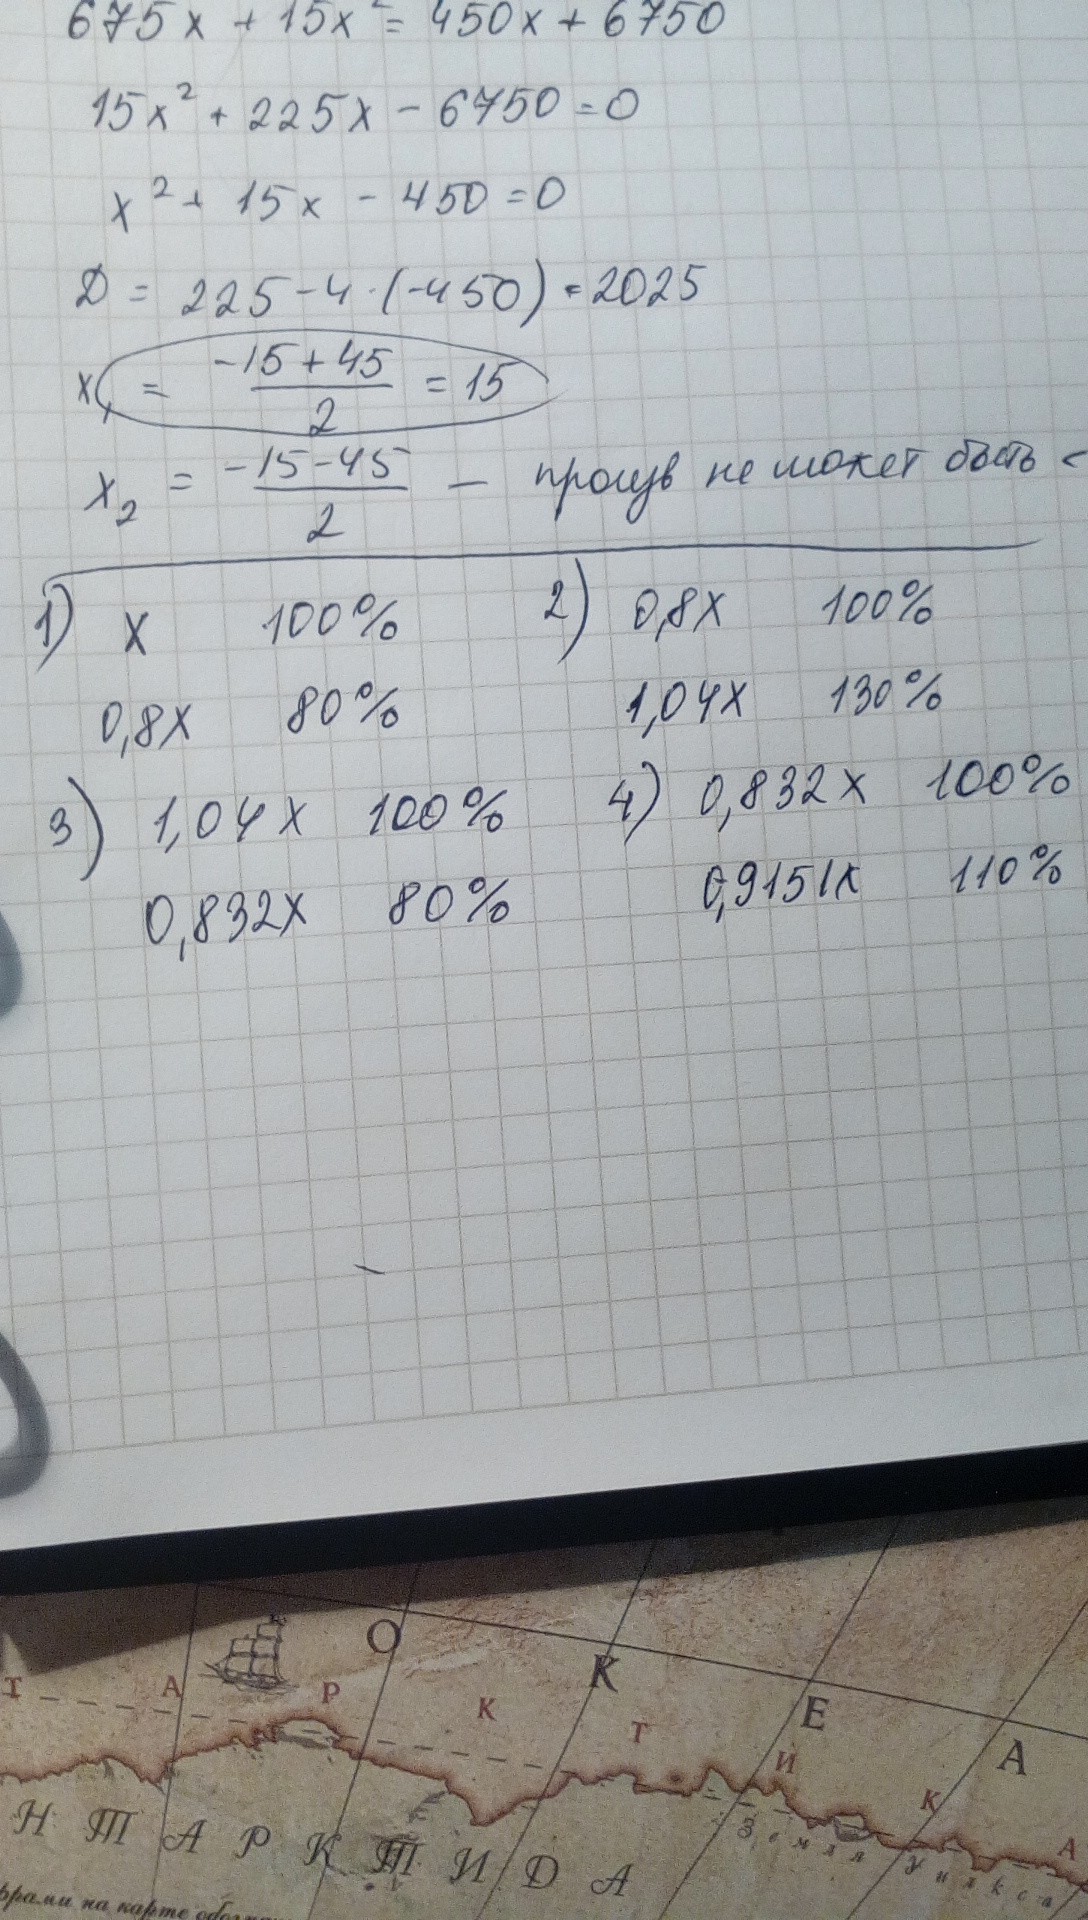 675x + 15x² = 450x + 6750
15x² + 225x - 6750 = 0
x² + 15x - 450 = 0
D = 225 - 4 · (-450) = 2025
x₁ = (-15 + 45)/2 = 15
x₂ = (-15 - 45)/2 — не может быть <
1) x 100%
0,8x 80%
2) 0,8x 100%
1,04x 130%
3) 1,04x 100%
0,832x 80%
4) 0,832x 100%
0,9151x 110%
О К Е А
Т А Р К Т И К А
Н Т А Р К Т И Д А
Земля Уилкса
на карте